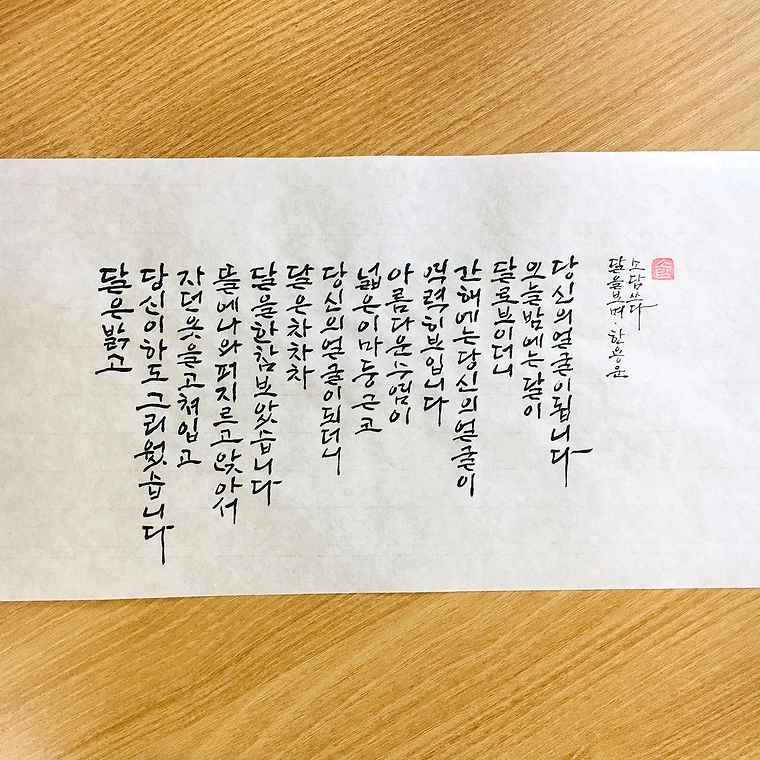 달은 밝고
당신이 하도 그리웠습니다
자던 옷을 고쳐 입고
뜰에 나와 퍼지르고 앉아서
달을 한참 보았습니다
달은 차차차
당신의 얼굴이 되더니
넓은 이마 둥근 코
아름다운 수염이
역력히 보입니다
간 해에는 당신의 얼굴이
달로 보이더니
오늘 밤에는 달이
당신의 얼굴이 됩니다
달을 보며 · 한용운
소담 쓰다
소담